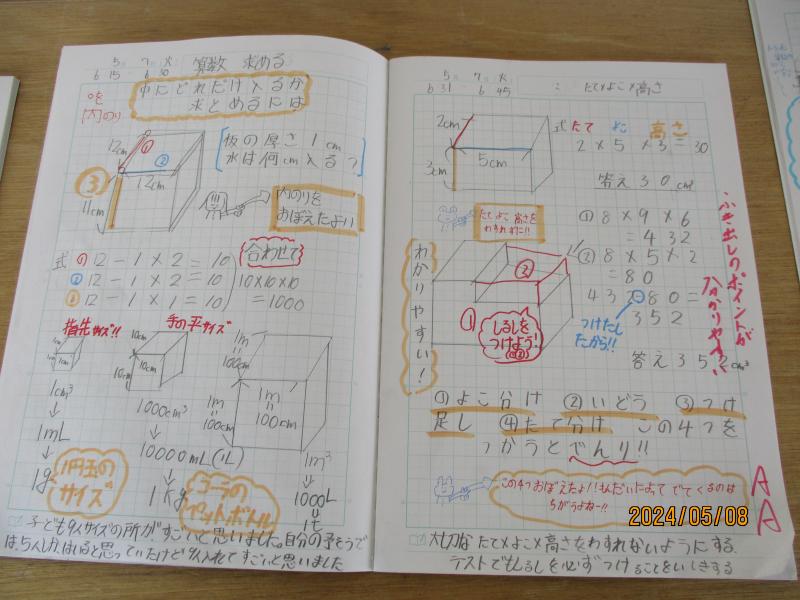 5月 7日 火
6 15 ~ 6 30
算数 求める
中にどれだけ入るか
求とめるには
内のり
12cm
①
②
12cm
③
11cm
板の厚さ 1cm
水は何cm入る?
内のりを
おぼえたよ!!
式 の 12 - 1 × 2 = 10
② 12 - 1 × 2 = 10
③ 12 - 1 × 1 = 10
合わせて
10×10×10
= 1000
指先サイズ!!
1cm
1cm
1cm³
↓
1mL
↓
1g
1円玉の
サイズ
手の平サイズ
10cm
10cm
10cm
1000cm³
↓
10000mL(1L)
↓
1kg
コーラの
ペットボトル
1m
100cm
1m
100cm
1m
100cm
1m³
↓
1000L
↓
1t
子ども9人サイズの所がすごいと思いました。自分の予そうで
は、5人しかはいると思っていたけど9人入れてすごいと思いました
5月 7日 火
6 31 ~ 6 45
たて×よこ×高さ
2cm
3cm
5cm
式 たて よこ 高さ
2 × 5 × 3 = 30
答え 30cm³
たてよこ高さを
わすれずに!!
① 8 × 9 × 6
= 432
② 8 × 5 × 2
= 80
432 - 80 =
352
つけたし
たから!!
答え 352cm³
わかりやすい!
①
②
しるしを
つけよう!
ふき出しのポイントが
分かりやすい
①よこ分け ②いどう ③つけ
足し ④たて分け この4つを
つかうとべんり!!
この4つおぼえたよ!!もんだいによってでてくるのは
ちがうよねー!!
A
A
大切なたて×よこ×高さをわすれないようにする。
テストでもしるしを必ずつけることをいしきする
2024/05/08